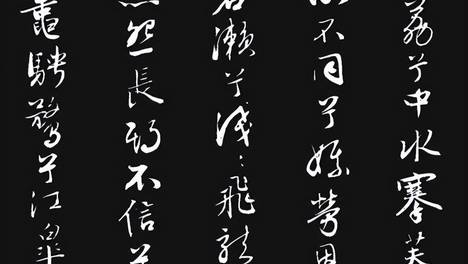 荔兮中水搴芙
不同兮媒勞恩
石瀨兮淺〻飛龍
怨長期不信兮
鼂騁騖兮江皋